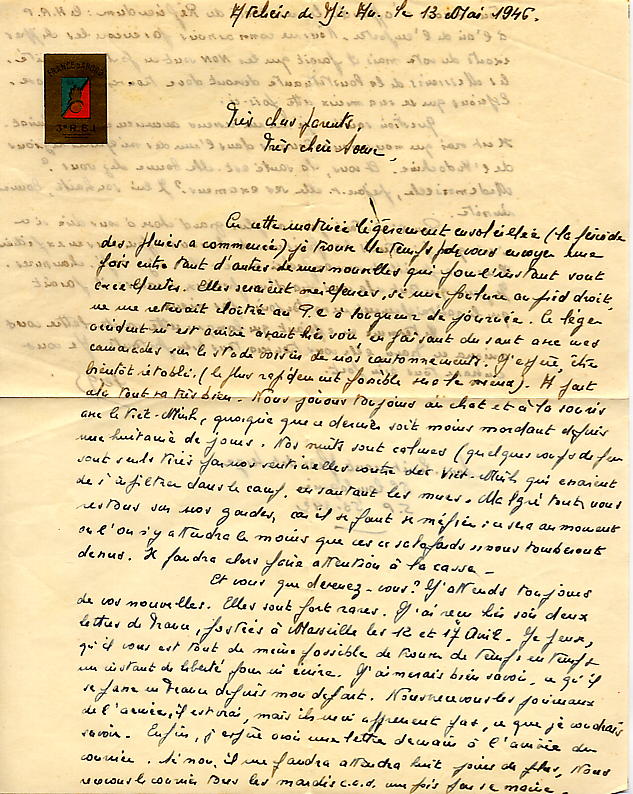 Ateliers de Mi-Ho. le 13 Mai 1946.
FRANCE D'ABORD
3e R.E.I
Très chers parents,
Très chère soeur,
En cette matinée légèrement ensoleillée (la période
des pluies a commencé) je trouve le temps de vous envoyer une
fois entre tant d'autres de mes nouvelles qui pour l'instant sont
excellentes. Elles seraient meilleures, si une foulure au pied droit,
ne me retenait cloîtré au P.C à longueur de journée. Ce léger
accident m'est arrivé avant hier soir en faisant du saut avec mes
camarades sur le stade voisin de nos cantonnements. J'espère, être
bientôt rétabli. (le plus rapidement possible sera le mieux). A part
cela tout va très bien. Nous jouons toujours au chat et à la souris
avec le Viet-Minh, quoique que ce dernier soit moins mordant depuis
une huitaine de jours. Nos nuits sont calmes (quelques coups de feu
sont seuls tirés par nos sentinelles contre des Viet-Minh qui essaient
de s'infiltrer dans le camp, en sautant les murs. Malgré tout, nous
restons sur nos gardes, car il se faut se méfier : ce sera au moment
où l'on s'y attendra le moins que ces "salopards" nous tomberont
dessus. Il faudra alors faire attention à la casse._
Et vous que devenez-vous? J'attends toujours
de vos nouvelles. Elles sont fort rares. J'ai reçu hier soir deux
lettres de France, postées à Marseille les 12 et 17 Avril. Je pense,
qu'il vous est tout de même possible de trouver de temps en temps
un instant de liberté pour m'écrire. J'aimerais bien savoir, ce qu'il
se passe en France depuis mon départ. Nous recevons les journaux
de l'armée, il est vrai, mais ils ne m'apprennent pas, ce que je voudrais
savoir. Enfin, j'espère avoir une lettre demain à l'arrivée du
courrier. Si non, il me faudra attendre huit jours de plus, Nous
recevons le courrier tous les mardis c.a.d. une fois par semaine.